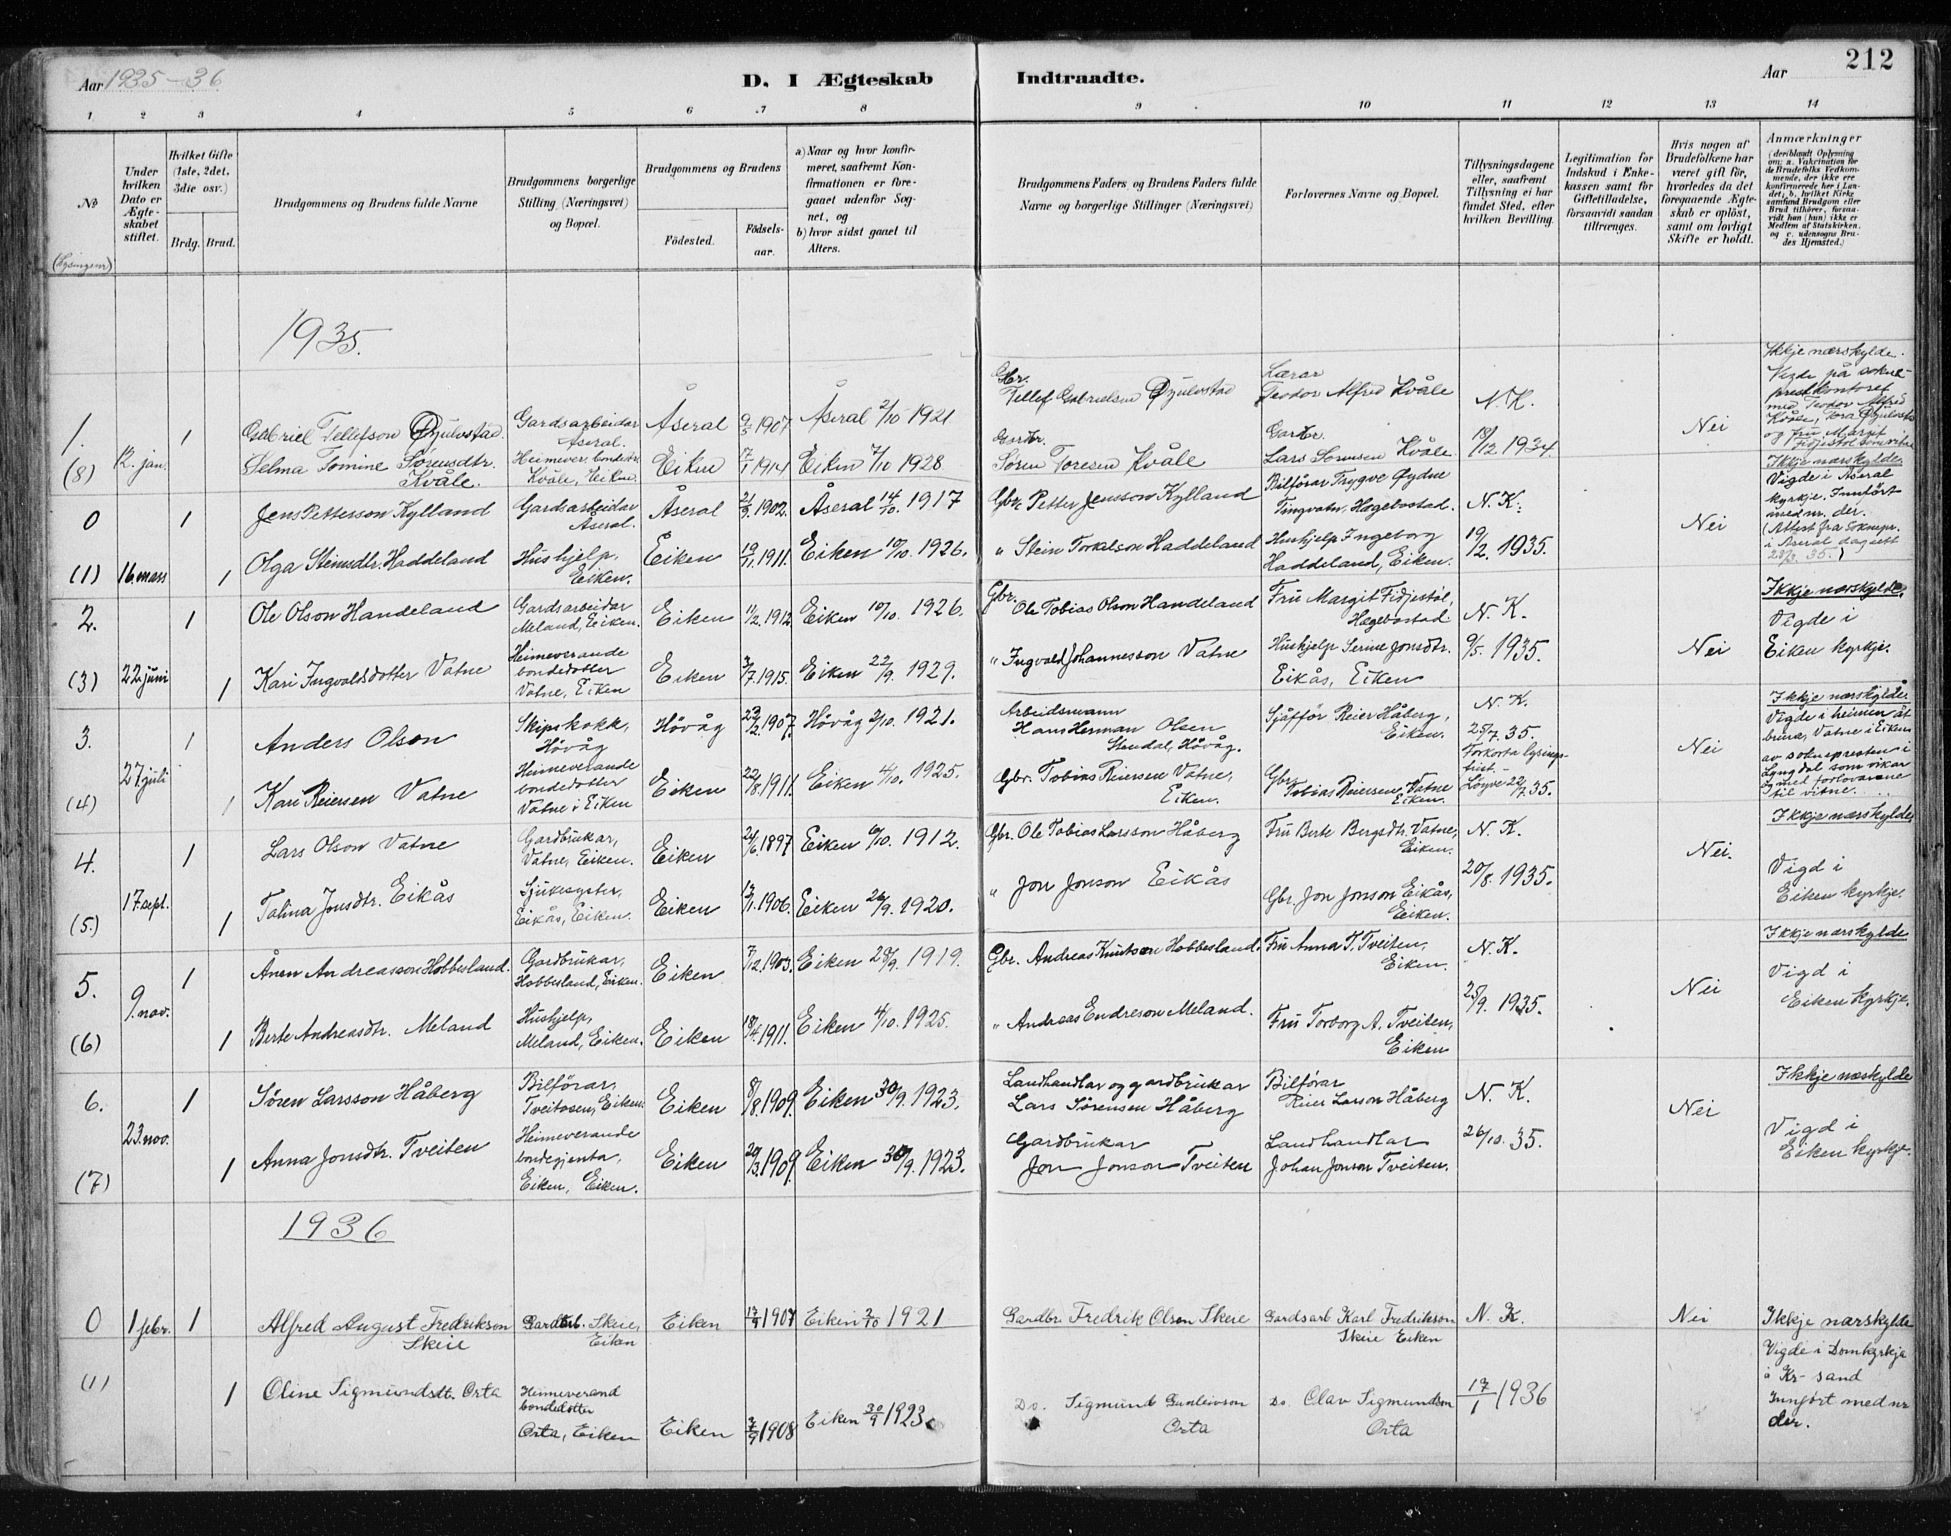 Aar 1935-36
D. I Ægteskab Indtraadte.
Aar
212
1 2 3 4 5 6 7 8 9 10 11 12 13 14
No
(Lysingsnr)
Under hvilken Dato er Ægteskabet stiftet.
Hvilket Gifte (1ste, 2det, 3die osv.)
Brdg. Brud.
Brudgommens og Brudens fulde Navne
Brudgommens borgerlige Stilling (Næringsvei) og Bopæl.
Brudgommens og Brudens
Födested.
Födselsaar.
a) Naar og hvor konfirmeret, saafremt Konfirmationen er foregaaet udenfor Sognet, og
b) hvor sidst gaaet til Alters.
Brudgommens Faders og Brudens Faders fulde Navne og borgerlige Stillinger (Næringsvei)
Forlovernes Navne og Bopæl.
Tillysningsdagene eller, saafremt Tillysning ei har fundet Sted, efter hvilken Bevilling.
Legitimation for Indskud i Enkekassen samt for Giftetilladelse, forsaavidt saadan tiltrænges.
Hvis nogen af Brudefolkene har været gift för, hvorledes da det foregaaende Ægteskab er oplöst, samt om lovligt Skifte er holdt.
Anmærkninger
(deriblandt Oplysning om: a. Vakcination for de Brudefolks Vedkommende, der ikke ere konfirmerede her i Landet; b. hvilket Kirkesamfund Brudgom eller Brud tilhører, forsaavidt han (hun) ikke er Medlem af Statskirken, og c. udensogns Brudes Hjemsted.)
1935.
1. (8) 12. jan. 1
Gabriel Tellefson
Gardsarbeidar Åseral.
Åseral 1907 Åseral 2/10 1921
Gbr. Tellef Gabrielsen
Lærar Teodor Alfred Kvåle
N. K.
Nei
Ikkje nærskylde. Vigde på sokneprestkontoret med Teodor Alfred Kvåle, Tora og fru Margit Fidjestøl som vitne
Selma Tomine Sørensdtr. Kvåle.
Heimever. bondedtr. Kvåle, Eiken.
Eiken 7/1 1914 Eiken 7/10 1928
Gardbr. Søren Toresen Kvåle
Gardbr. Lars Sørensen Kvåle
18/12 1934
0 (1) 16. mars 1
Jens Pettersson Kylland
Gardsarbeidar Åseral.
Åseral 21/9 1902. Åseral 14/10. 1917
Gbr. Petter Jensson Kylland
Bilförar Trygve Øydne Tingvatn, Hægebostad.
N. K.
Nei
Ikkje nærskylde Vigde i Åseral kyrkje. Innført med nr. der. (Attest fra soknepr. i Åseral dagsett 35.)
1 Olga Steinsdtr. Haddeland
Hushjelp, Eiken.
Eiken 19/11 1911. Eiken 10/10. 1926.
" Stein Torkelson Haddeland
Hushjelp Ingeborg Haddeland, Eiken.
19/2. 1935.
2. (3) 22 juni 1
Ole Olson Handeland
Gardsarbeidar Meland, Eiken.
Eiken 11/2. 1912 Eiken 10/10. 1926.
Gbr. Ole Tobias Olson Handeland
Fru Margit Fidjestøl, Hægebostad
N. K.
Nei
Ikkje nærskylde. Vigde i Eiken kyrkje.
1 Kari Ingvaldsdotter Vatne
Heimeverande bondedotter Vatne, Eiken
Eiken 3/7. 1915. Eiken 22/9. 1929.
" Ingvald Johannesson Vatne
Hushjelp Serine Jonsdtr. Eikås, Eiken
9/5. 1935.
3. (4) 27 juli 1
Anders Olson
Skipskokk, Høvåg
Høvåg 23/2 1907. Høvåg 2/10. 1921.
Arbeidsmann Hans Herman Olsen Høvåg.
Sjåffør Reier Håberg, Eiken.
N. K. 25/7. 35. Forkorta lysingsfrist. Løyve 22/7. 35.
Nei
Ikkje nærskylde Vigde i heimen åt brura, Vatne i Eiken av soknepresten i Lyngdal som vikar med forlovarane til vitne.
1 Kari Reiersen Vatne
Heimeverande bondedotter Vatne i Eiken
Eiken 22/8. 1911. Eiken 4/10. 1925.
Gbr. Tobias Reiersen Vatne, Eiken.
Gbr. Tobias Reiersen, Vatne Eiken.
4. (5.) 17. sept. 1
Lars Olson Vatne
Gardbrukar, Vatne, Eiken.
Eiken 24/6. 1897 Eiken 6/10. 1912.
Gbr. Ole Tobias Larsson Håberg
Fru Berte Bergsdtr. Vatne, Eiken.
N. K.
Nei.
Ikkje nærskylde Vigd i Eiken kyrkje.
1 Talina Jonsdtr. Eikås
Sjukesyster, Eikås, Eiken.
Eiken 13/1. 1906. Eiken 26/9. 1920.
" Jon Jonson Eikås
Gbr. Jon Jonson Eikås, Eiken.
20/8. 1935.
5. (6) 9. nov. 1
Ånen Andreasson Hobbesland.
Gardbrukar, Hobbesland, Eiken.
Eiken 7/12. 1903. Eiken 28/9. 1919.
Gbr. Andreas Knutson Hobbesland.
Fru Anna T. Tveiten, Eiken.
N. K.
Nei
Ikkje nærskylde Vigd i Eiken kyrkje.
1 Berte Andreasdtr. Meland
Hushjelp, Meland, Eiken.
Eiken 18/4. 1911. Eiken 4/10. 1925.
" Andreas Endreson Meland.
Fru Torborg A. Tveiten, Eiken
25/9. 1935.
6. (7) 23. nov. 1
Søren Larsson Håberg
Bilförar, Tveitosen, Eiken.
Eiken 8/8. 1909. Eiken 30/9. 1923.
Landhandlar og gardbrukar Lars Sørensen Håberg
Bilförar Reier Larson Håberg
N. K.
Nei
Ikkje næskylde Vigd i Eiken kyrkje.
1 Anna Jonsdtr. Tveiten
Heimeverande bondegjenta, Eiken, Eiken.
Eiken 20/3. 1909. Eiken 30/9. 1923.
Gardbrukar Jon Jonson Tveiten
Landhandlar Johan Jonson Tveiten.
26/10. 35.
1936
0 (1) 1 febr. 1
Alfred August Fredrikson Skeie
Skeie, Eiken
Eiken 17/9 1907 Eiken 2/10 1921
Gardbr. Fredrik Olsen Skeie
Gardsarb Karl Fredrikson Skeie Eiken
N. K.
Nei
Ikkje nærskylde Vigde i Domkyrkja i Kr-sand Innført med nr der.
1 Oline Sigmundsdt. Orta
Heimeverand bondedotter Orta, Eiken
Eiken 3/9 1908 Eiken 30/9 1923.
Do. Sigmund Gunleivson Orta
Do. Olav Sigmundson Orta
17/1 1936